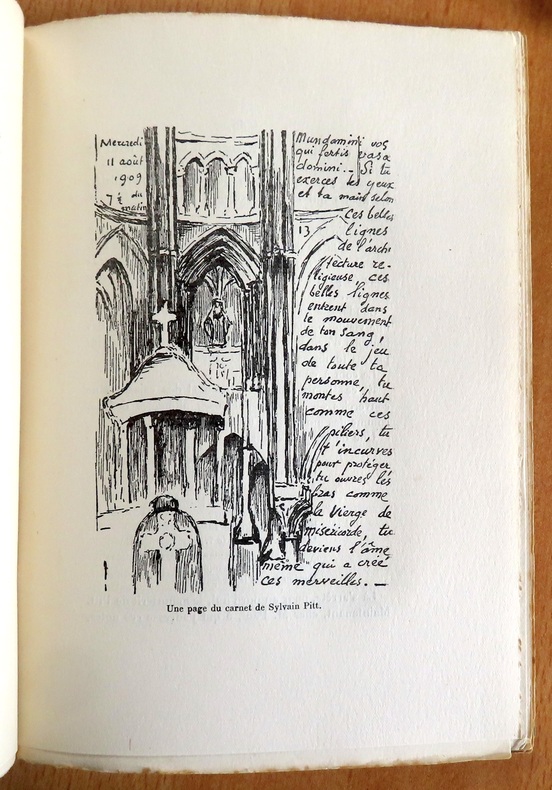 Mercredi
11 août
1909
7 ½ du
matin
Mundamini vos
qui fertis vasa
domini._ Si tu
exerces tes yeux
et ta main selon
ces belles
13
lignes
de l'archi
tecture re-
ligieuse ces
belles lignes
entrent dans
le mouvement
de ton sang,
dans le jeu
de toute ta
personne, tu
montes haut
comme ces
piliers, tu
t'incurves
pour protéger
tu ouvres les
bras comme
la Vierge de
miséricorde, tu
deviens l'âme
même qui a créé
ces merveilles. _
Une page du carnet de Sylvain Pitt.